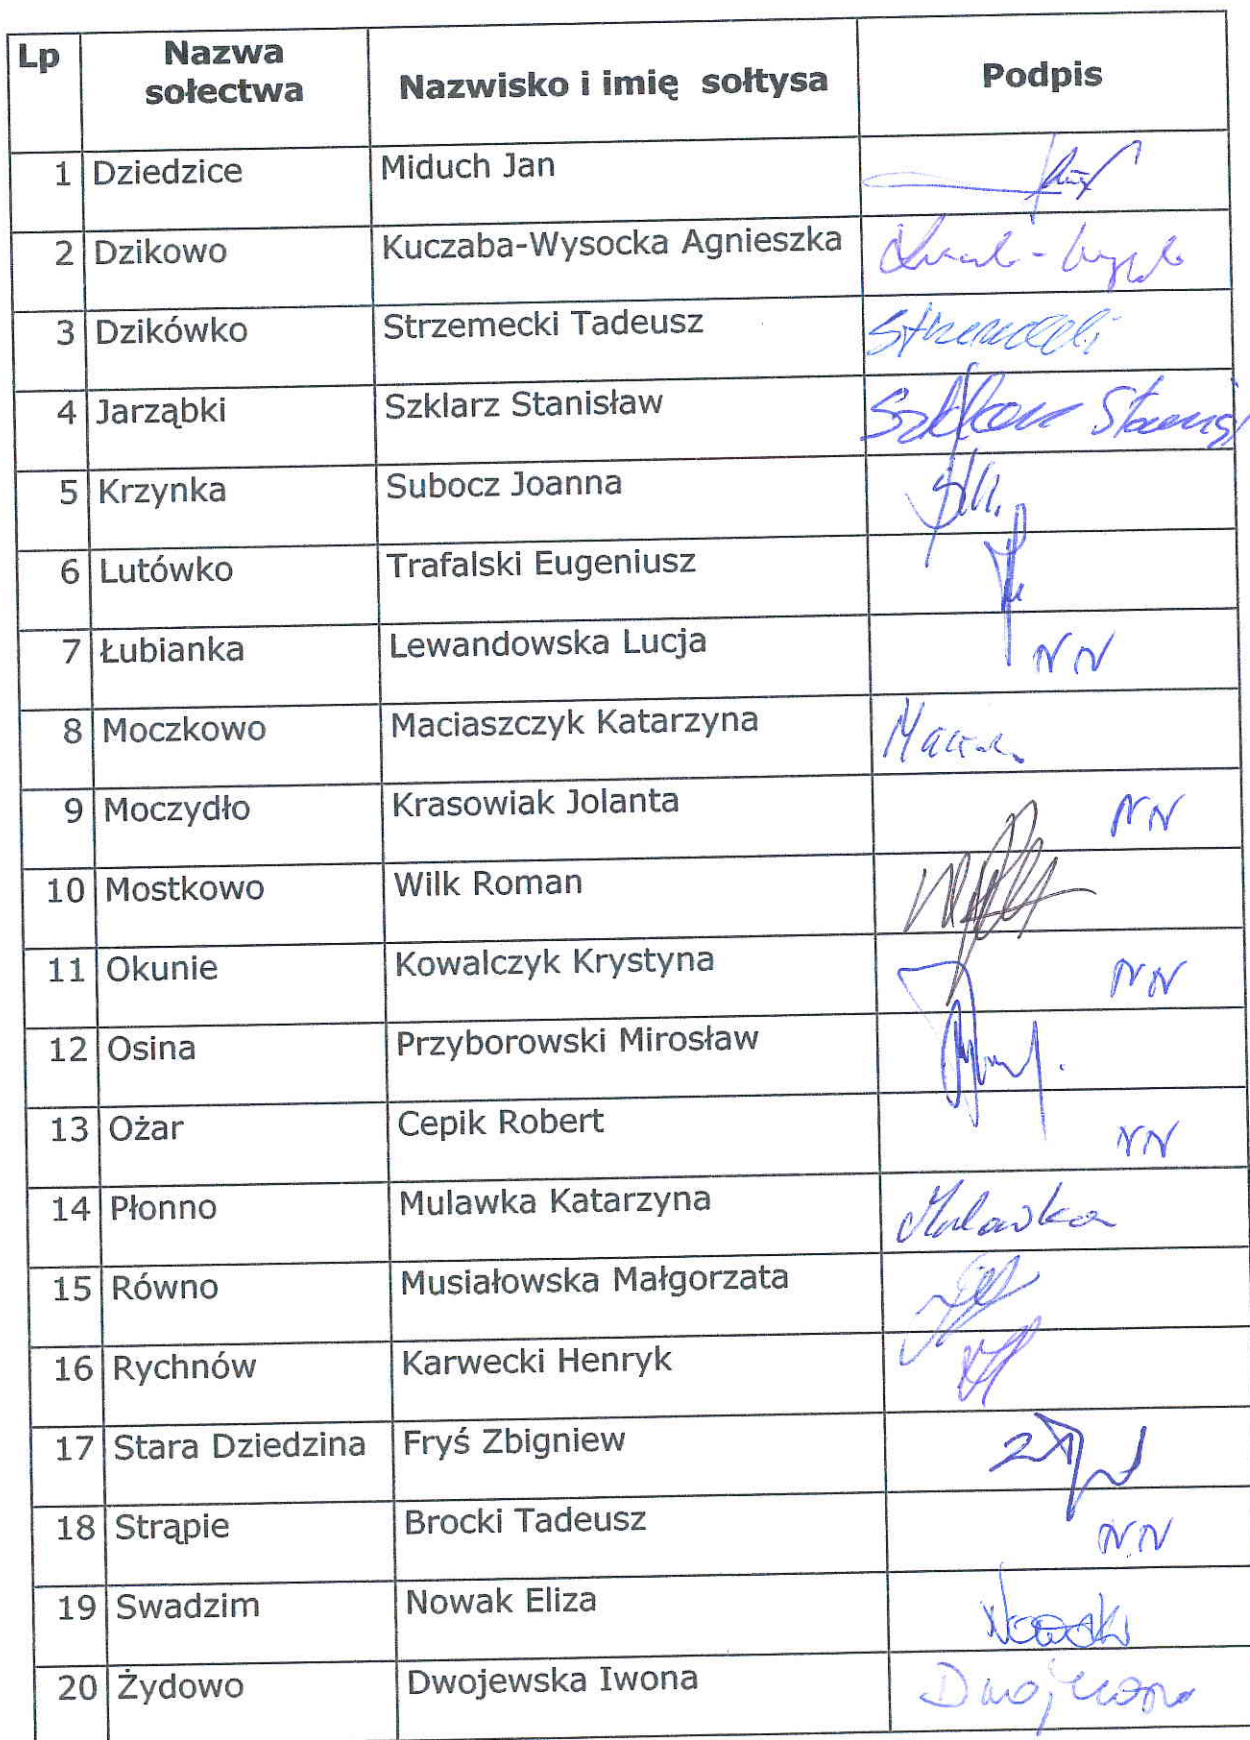 Lp Nazwa sołectwa Nazwisko i imię sołtysa Podpis
1 Dziedzice Miduch Jan
2 Dzikowo Kuczaba-Wysocka Agnieszka
3 Dzikówko Strzemecki Tadeusz
4 Jarząbki Szklarz Stanisław
5 Krzynka Subocz Joanna
6 Lutówko Trafalski Eugeniusz
7 Łubianka Lewandowska Lucja NN
8 Moczkowo Maciaszczyk Katarzyna
9 Moczydło Krasowiak Jolanta NN
10 Mostkowo Wilk Roman
11 Okunie Kowalczyk Krystyna NN
12 Osina Przyborowski Mirosław
13 Ożar Cepik Robert NN
14 Płonno Mulawka Katarzyna Mulawka
15 Równo Musiałowska Małgorzata
16 Rychnów Karwecki Henryk
17 Stara Dziedzina Fryś Zbigniew
18 Strąpie Brocki Tadeusz NN
19 Swadzim Nowak Eliza
20 Żydowo Dwojewska Iwona